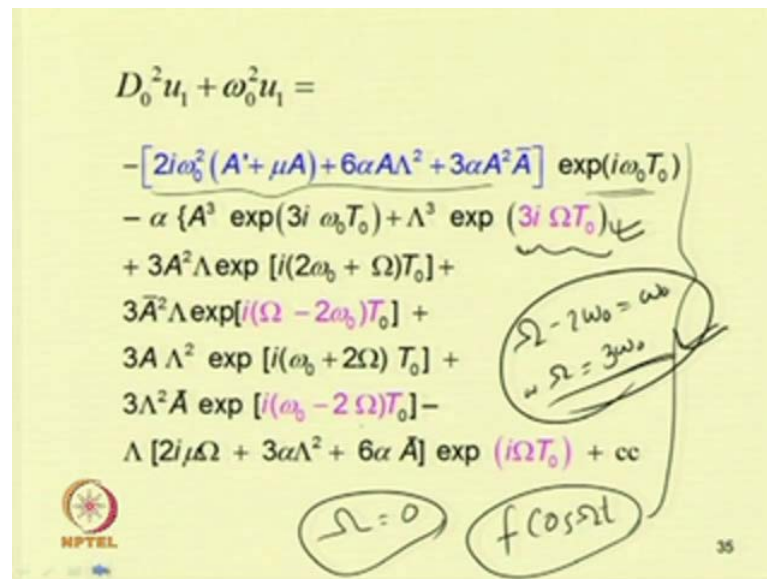 D₀²u₁ + ω₀²u₁ =
-[2iω₀²(A'+ μA)+6αAΛ²+3αA²Ā] exp(iω₀T₀)
- α {A³ exp(3i ω₀T₀)+Λ³ exp (3i ΩT₀)
+ 3A²Λexp [i(2ω₀ + Ω)T₀]+
3Ā²Λexp[i(Ω - 2ω₀)T₀] +
3A Λ² exp [i(ω₀ + 2Ω) T₀] +
3Λ²Ā exp [i(ω₀ - 2 Ω)T₀]-
Λ [2iμΩ + 3αΛ² + 6α Ā] exp (iΩT₀) + cc
Ω - 2ω₀ = ω₀
Ω = 3ω₀
Ω = 0
f cosΩt
NPTEL
35